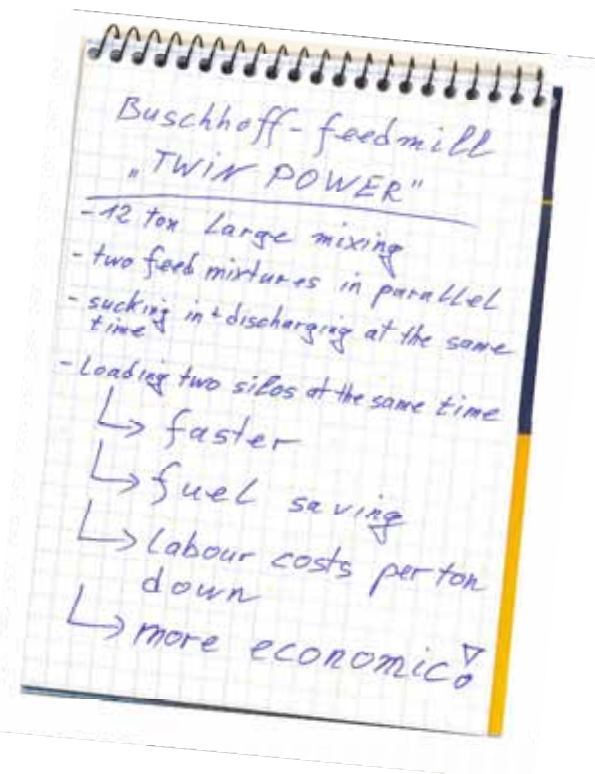 Buschhoff-feedmill
„TWIN POWER"
-12 ton large mixing
- two feed mixtures in parallel
- sucking in + discharging at the same
time
- Loading two silos at the same time
↳ faster
↳ fuel saving
↳ labour costs per ton
down
↳ more economic!